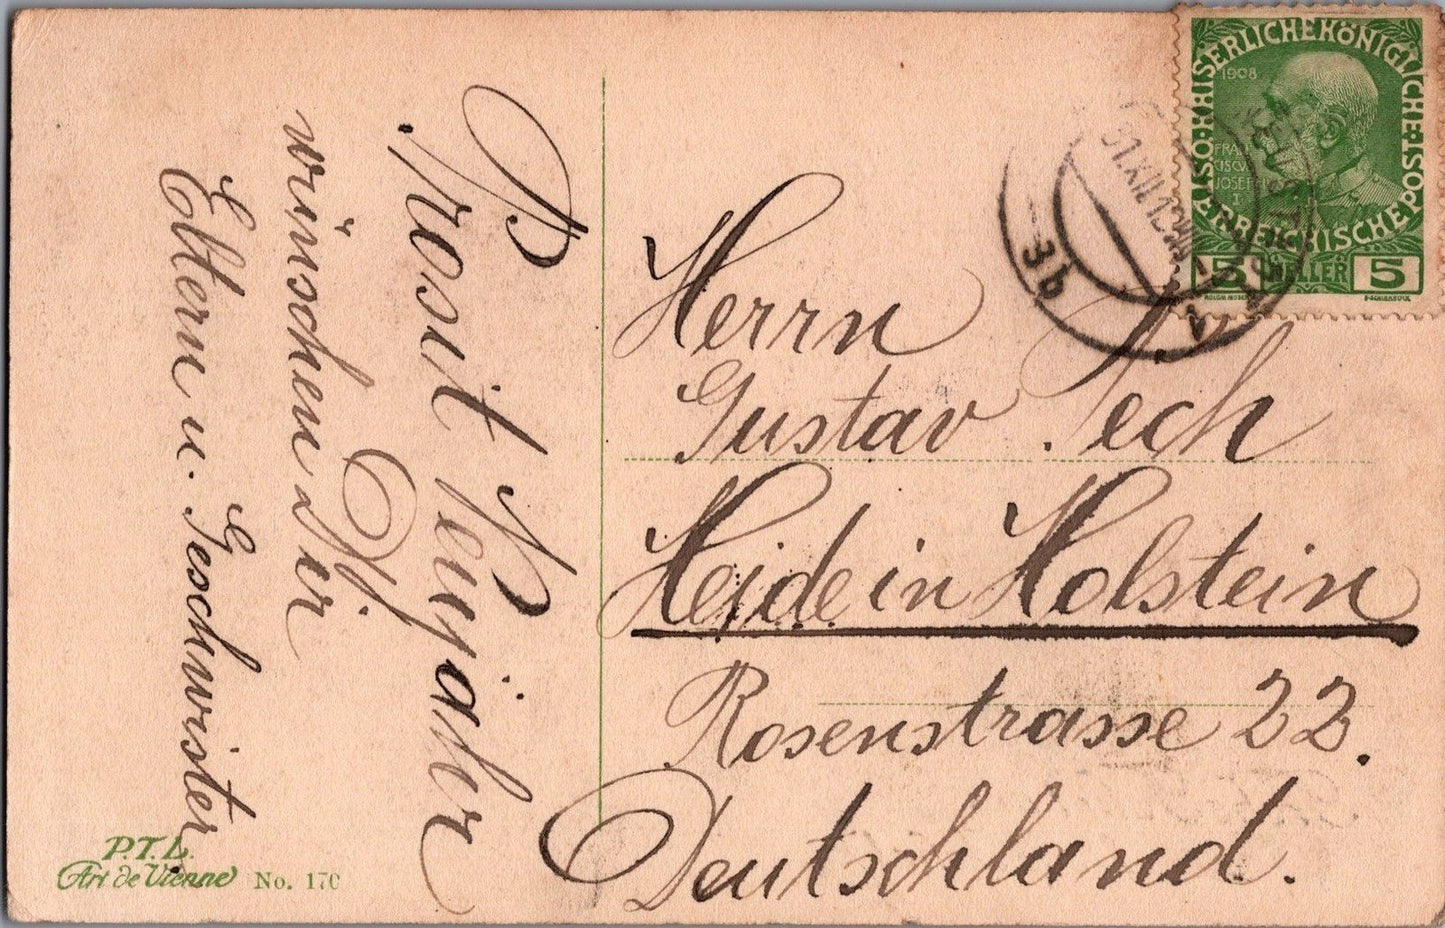 Prosit Neujahr
wünschen Dir
Eltern u. Geschwister
Herrn
Gustav Pech
Heide in Holstein
Rosenstrasse 22.
Deutschland.
P.T.L.
Art de Vienne No. 170
KAISERLICHE KÖNIGLICHE ÖSTERREICHISCHE POST
1908
FRAN
CISCVS
JOSEF
I
5 HELLER 5
31.XII.
3b